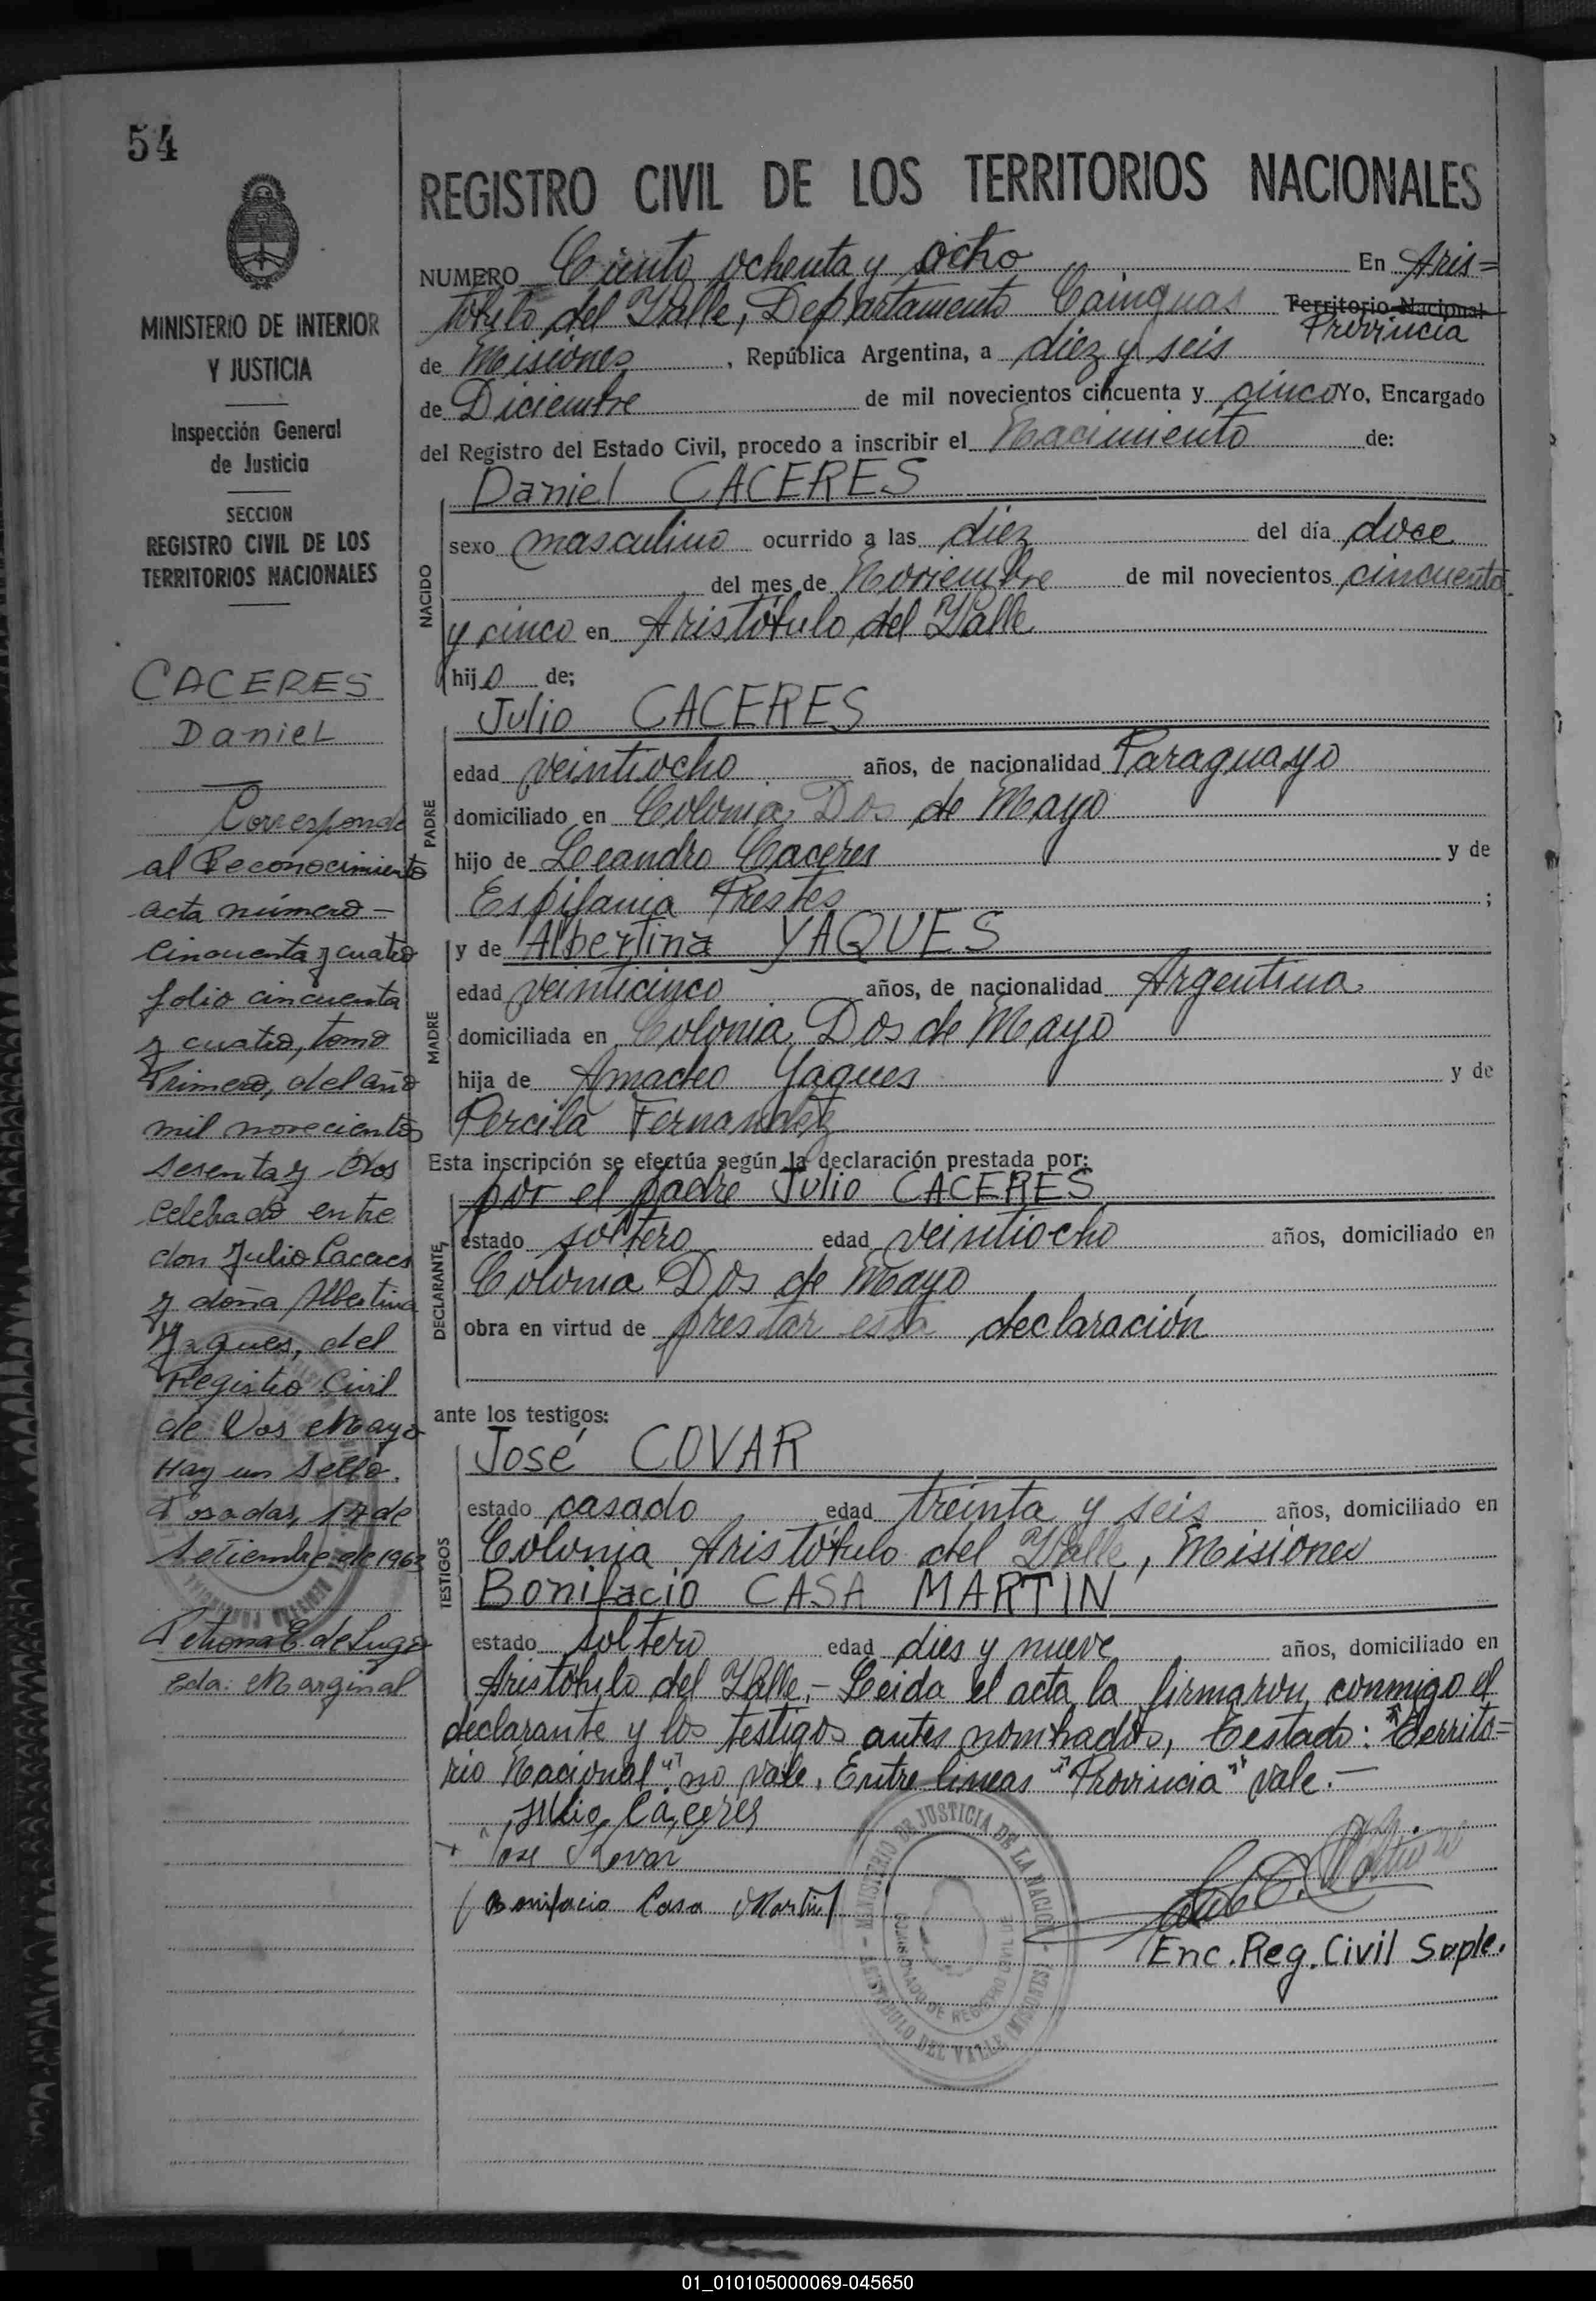 54
MINISTERIO DE INTERIOR
Y JUSTICIA
Inspección General
de Justicia
SECCION
REGISTRO CIVIL DE LOS
TERRITORIOS NACIONALES
CACERES
Daniel
Corresponde
al Reconocimiento
acta número –
cincuenta y cuatro
folio cincuenta
y cuatro, tomo
Primero, del año
mil novecientos
sesenta y dos
celebrado entre
don Julio Caceres
y doña Albertina
Yaques, del
Registro Civil
de Dos Mayo
Hay un sello.
Posadas, 17 de
Setiembre de 1963
Petrona E. de Lugo
Eda. Marginal
REGISTRO CIVIL DE LOS TERRITORIOS NACIONALES
NUMERO Ciento ochenta y ocho En Aris=
tótulo del Valle, Departamento Cainguas Territorio Nacional
Provincia
de Misiones, República Argentina, a diez y seis
de Diciembre de mil novecientos cincuenta y cinco Yo, Encargado
del Registro del Estado Civil, procedo a inscribir el Nacimiento de:
NACIDO
Daniel CACERES
sexo masculino ocurrido a las diez del día doce
del mes de Noviembre de mil novecientos cincuenta
y cinco en Aristótulo del Valle
hijo de;
PADRE
Julio CACERES
edad veintiocho años, de nacionalidad Paraguayo
domiciliado en Colonia Dos de Mayo
hijo de Leandro Caceres y de
Espifania Prestes ;
MADRE
y de Albertina YAQUES
edad veinticinco años, de nacionalidad Argentina
domiciliada en Colonia Dos de Mayo
hija de Amadeo Yaques y de
Percila Fernandez
Esta inscripción se efectúa según la declaración prestada por:
DECLARANTE
por el padre Julio CACERES
estado soltero edad veintiocho años, domiciliado en
Colonia Dos de Mayo
obra en virtud de prestar esta declaración
ante los testigos:
TESTIGOS
José COVAR
estado casado edad treinta y seis años, domiciliado en
Colonia Aristótulo del Valle, Misiones
Bonifacio CASA MARTIN
estado soltero edad dies y nueve años, domiciliado en
Aristótulo del Valle.- Leida el acta la firmaron conmigo el
declarante y los testigos antes nombrados, Testado: "Territo=
rio Nacional": no vale. Entre lineas "Provincia" vale.-
Julio Cáceres
Jose Kovar
Bonifacio Casa Martin
MINISTERIO DE JUSTICIA DE LA NACION
ARISTOBULO DEL VALLE (MISIONES)
Enc. Reg. Civil Suple.
01_010105000069-045650